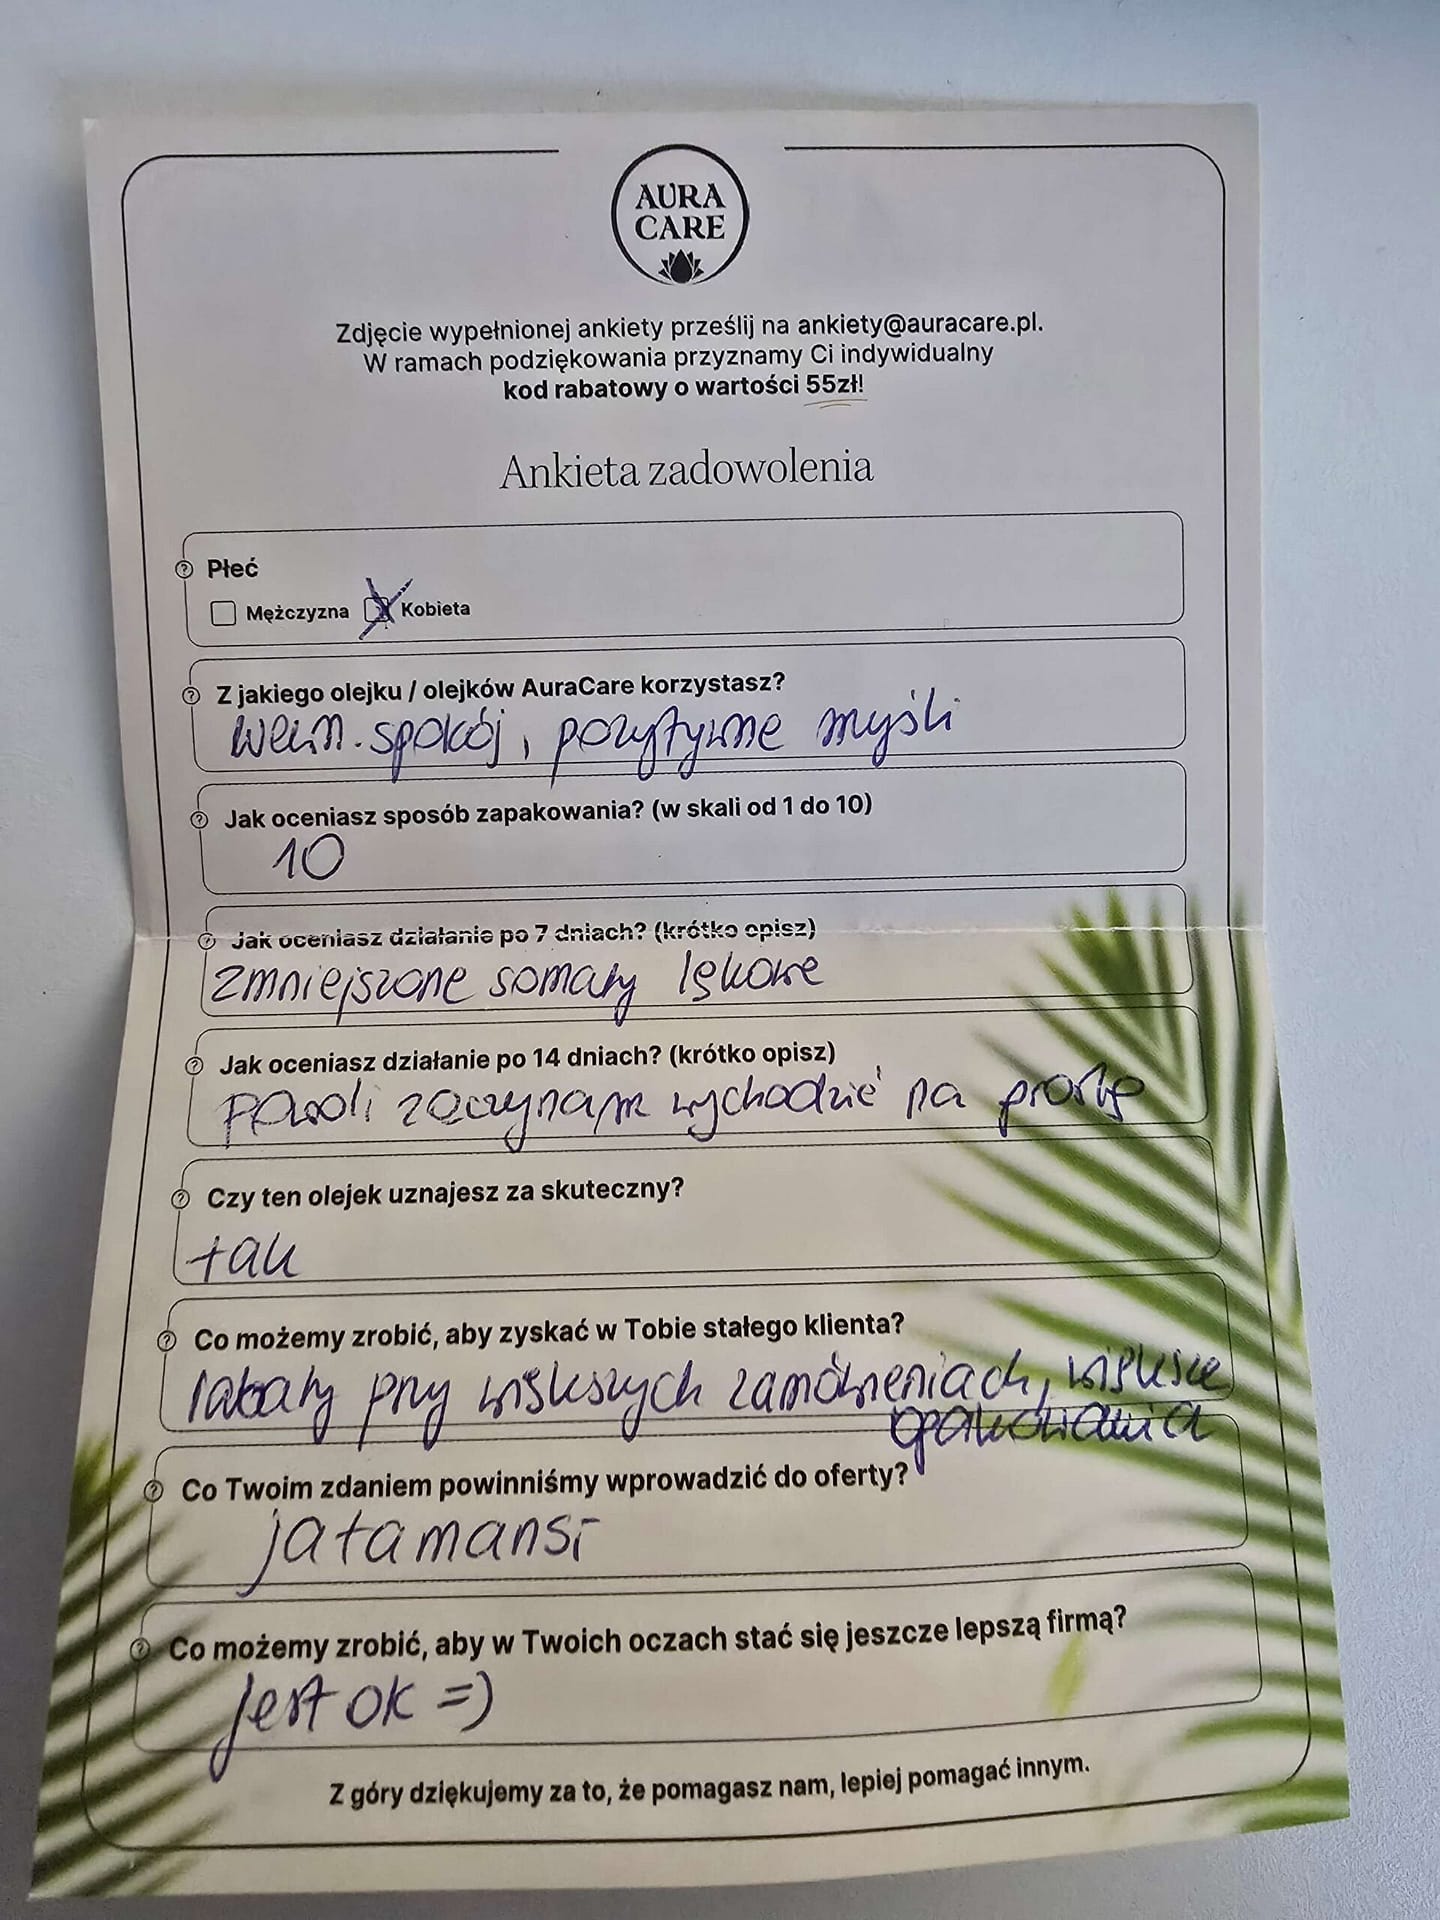 AURA
CARE
Zdjęcie wypełnionej ankiety prześlij na ankiety@auracare.pl.
W ramach podziękowania przyznamy Ci indywidualny
kod rabatowy o wartości 55zł!
Ankieta zadowolenia
Płeć
Mężczyzna Kobieta
Z jakiego olejku / olejków AuraCare korzystasz?
spokój, pozytywne myśli
Jak oceniasz sposób zapakowania? (w skali od 1 do 10)
10
Jak oceniasz działanie po 7 dniach? (krótko opisz)
zmniejszone somaty lękowe
Jak oceniasz działanie po 14 dniach? (krótko opisz)
powoli zaczynam wychodzić na prostą
Czy ten olejek uznajesz za skuteczny?
tak
Co możemy zrobić, aby zyskać w Tobie stałego klienta?
rabaty przy większych zamówieniach, większe
opakowania
Co Twoim zdaniem powinniśmy wprowadzić do oferty?
jatamansi
Co możemy zrobić, aby w Twoich oczach stać się jeszcze lepszą firmą?
jest ok =)
Z góry dziękujemy za to, że pomagasz nam, lepiej pomagać innym.